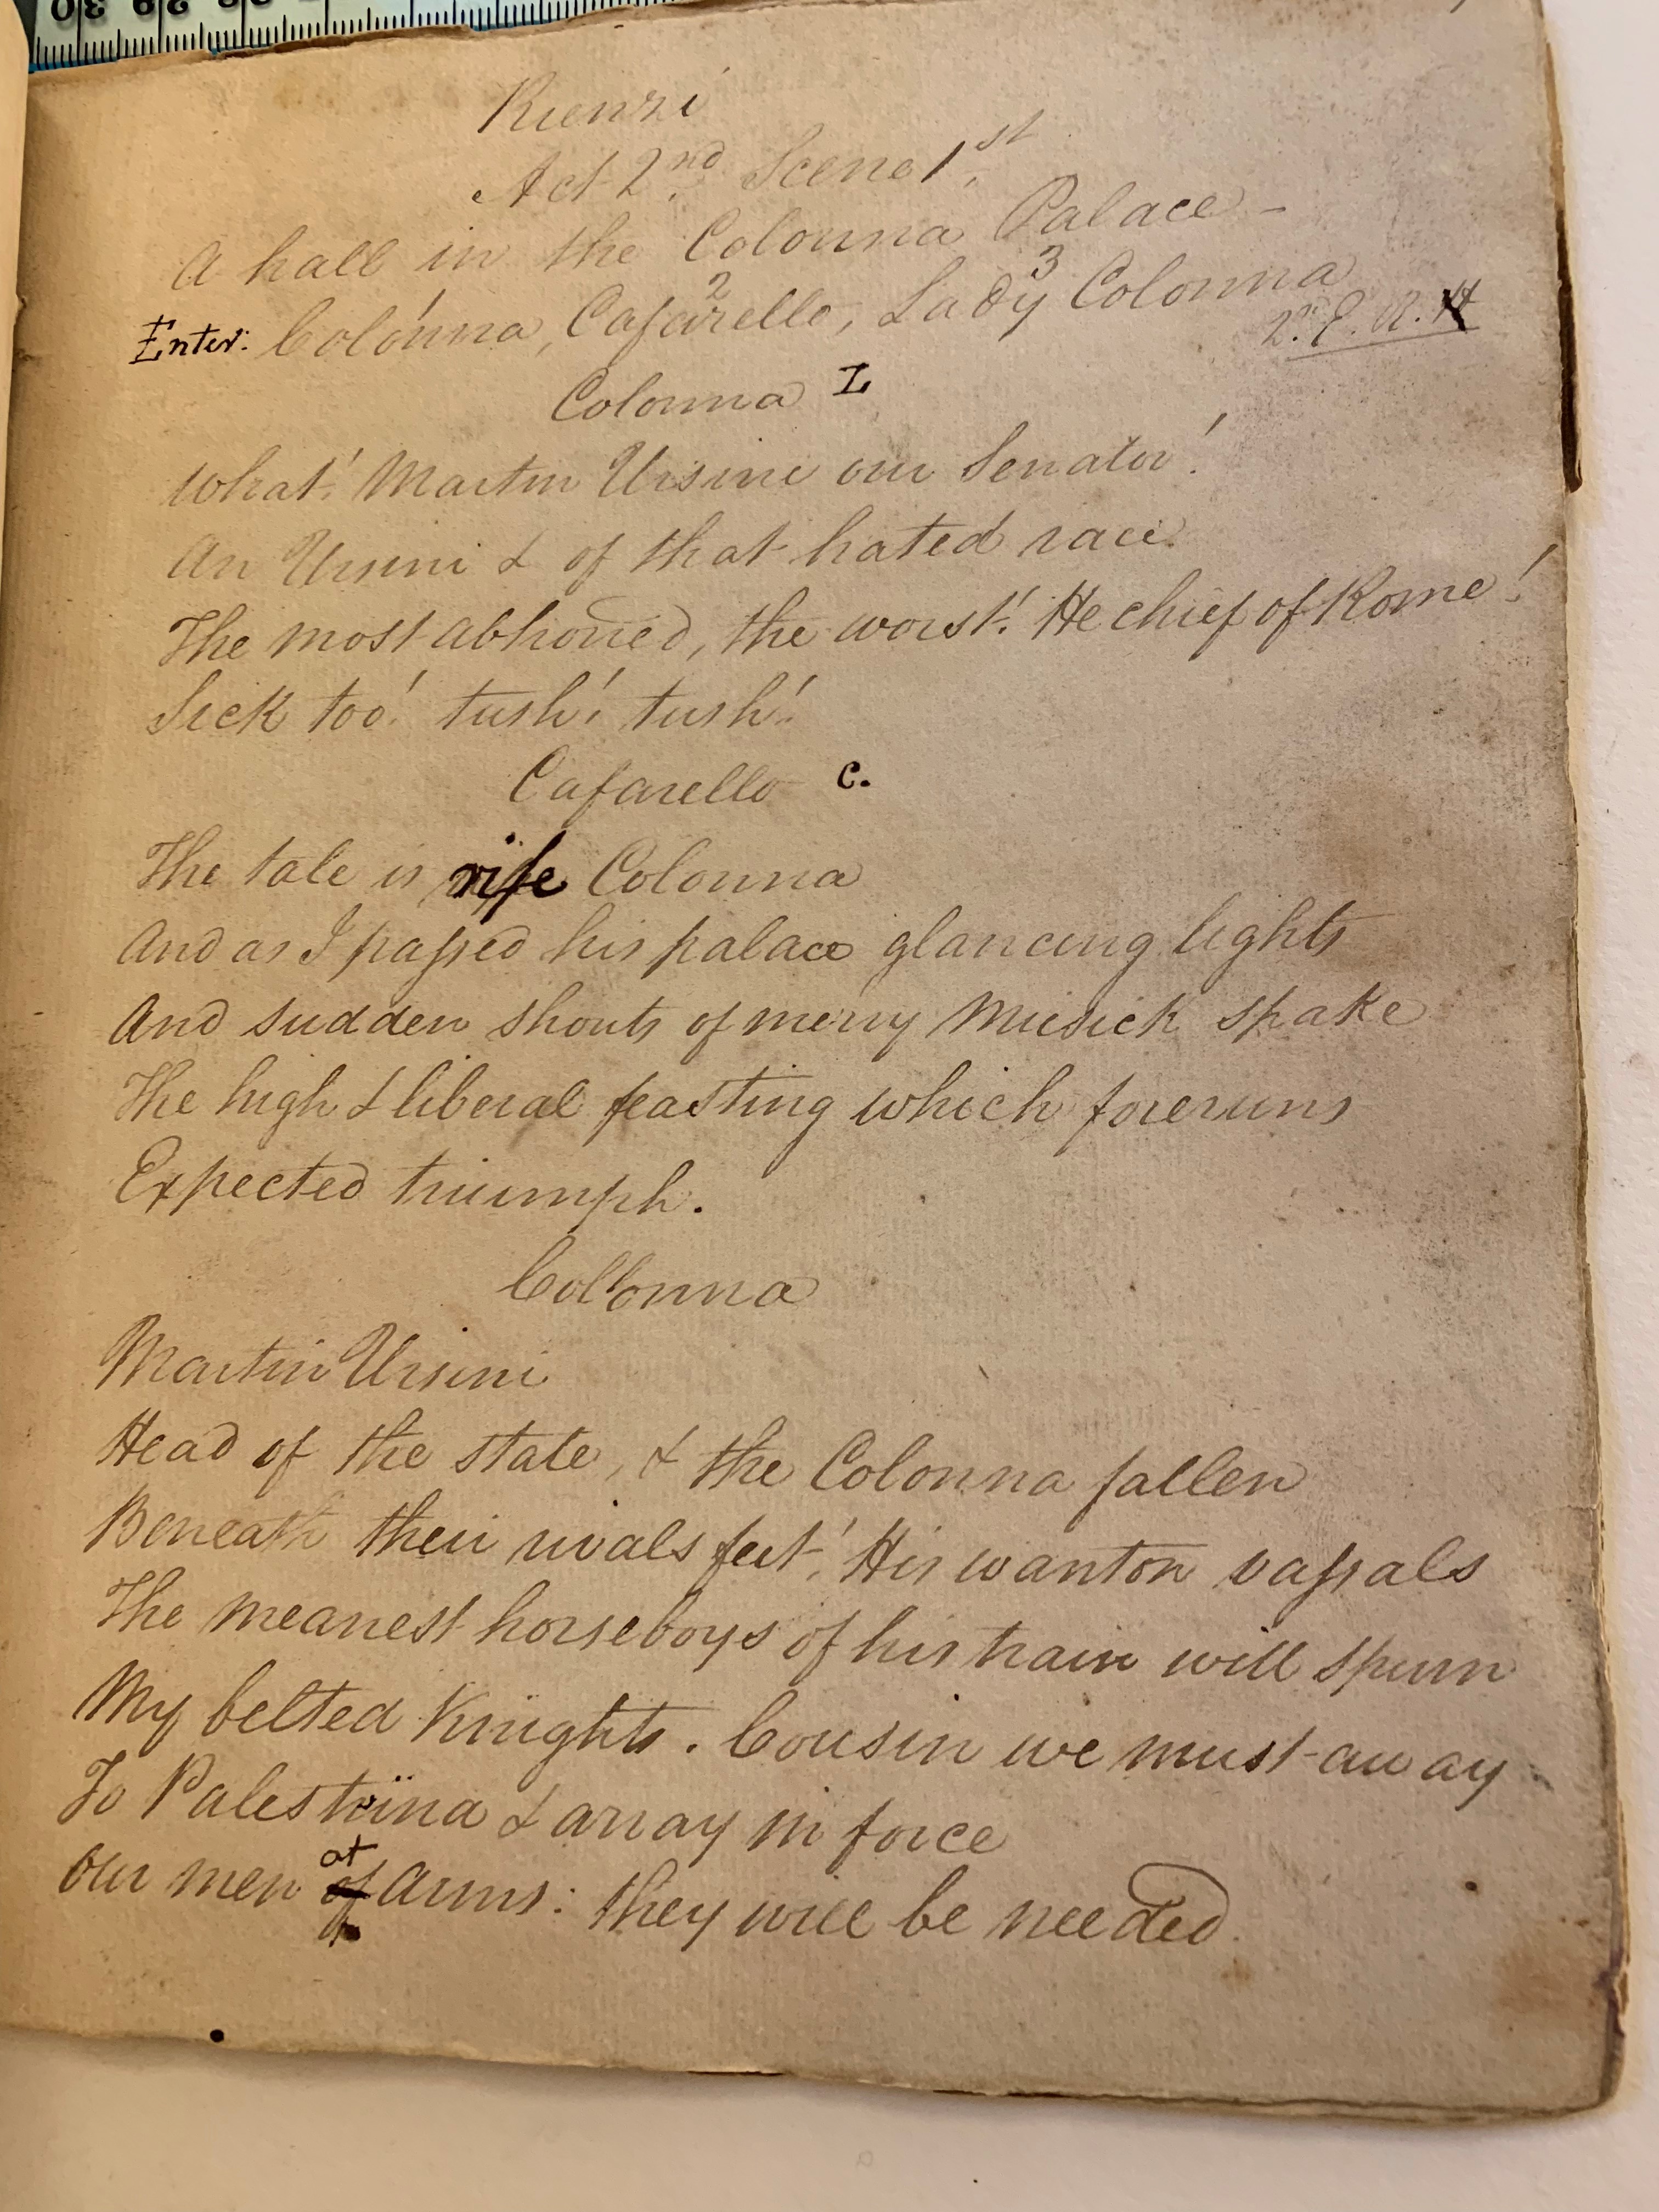 30 29 28
Rienzi
Act 2nd. Scene 1st.
A hall in the Colonna Palace -
2 3
Enter: Colonna, Cafarello, Lady Colonna
2d. E. R. H
Colonna L
What! Martin Ursini our Senator!
An Ursini & of that hated race
The most abhorred, the worst! He chief of Rome!
Sick too! tush! tush!
Cafarello C.
The tale is rife Colonna
And as I passed his palace glancing lights
And sudden shouts of merry Musick spake
The high & liberal feasting which foreruns
Expected triumph.
Collonna
Martin Ursini
Head of the state, & the Colonna fallen
Beneath their rivals feet! His wanton vassals
The meanest horseboys of his train will spurn
My belted Knights. Cousin we must away
To Palestrina & array in force
at
Our men of Arms: they will be needed.